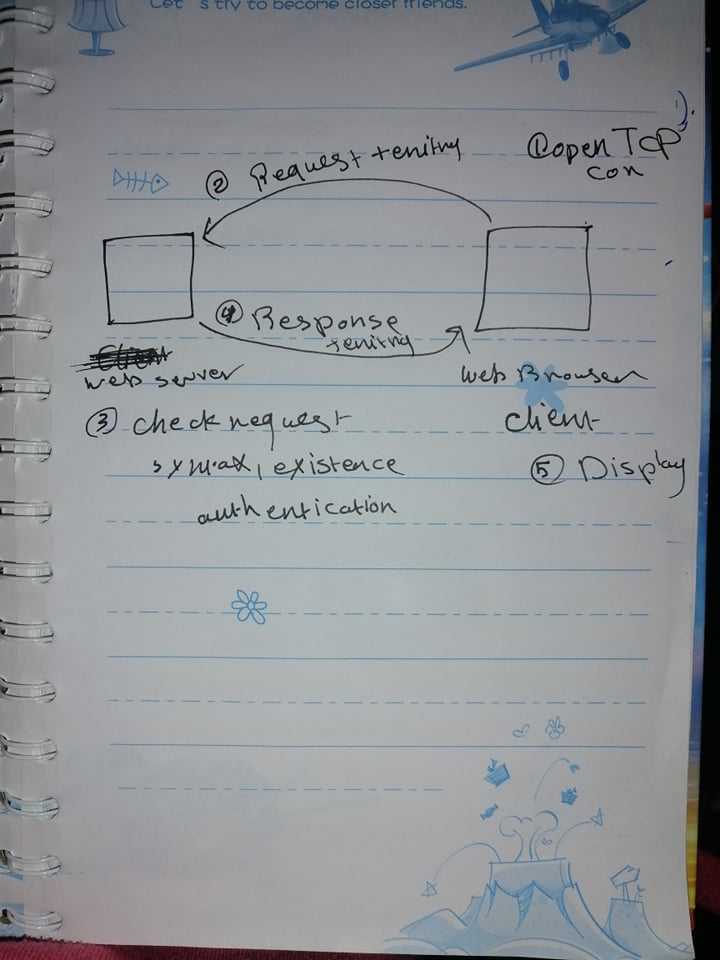 Let's try to become closer friends.
① open TCP
con
② Request tenitry
④ Response
tenitry
web server
web Browser
③ check request
client
syntax, existence
⑤ Display
authentication